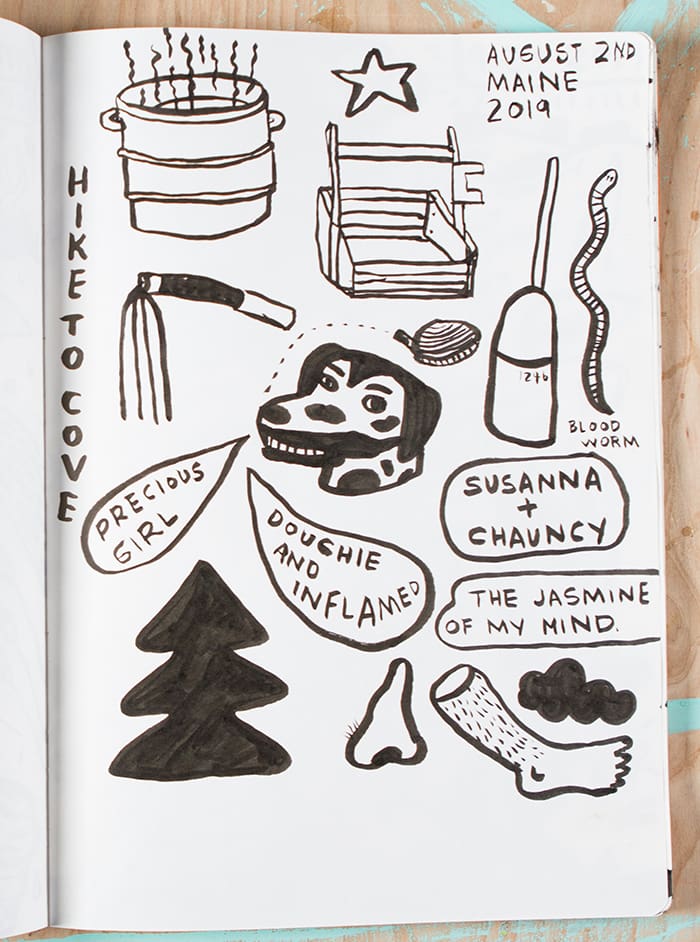 AUGUST 2ND
MAINE
2019
HIKE TO COVE
1246
BLOOD
WORM
PRECIOUS
GIRL
DOUCHIE
AND
INFLAMED
SUSANNA
+
CHAUNCY
THE JASMINE
OF MY MIND.